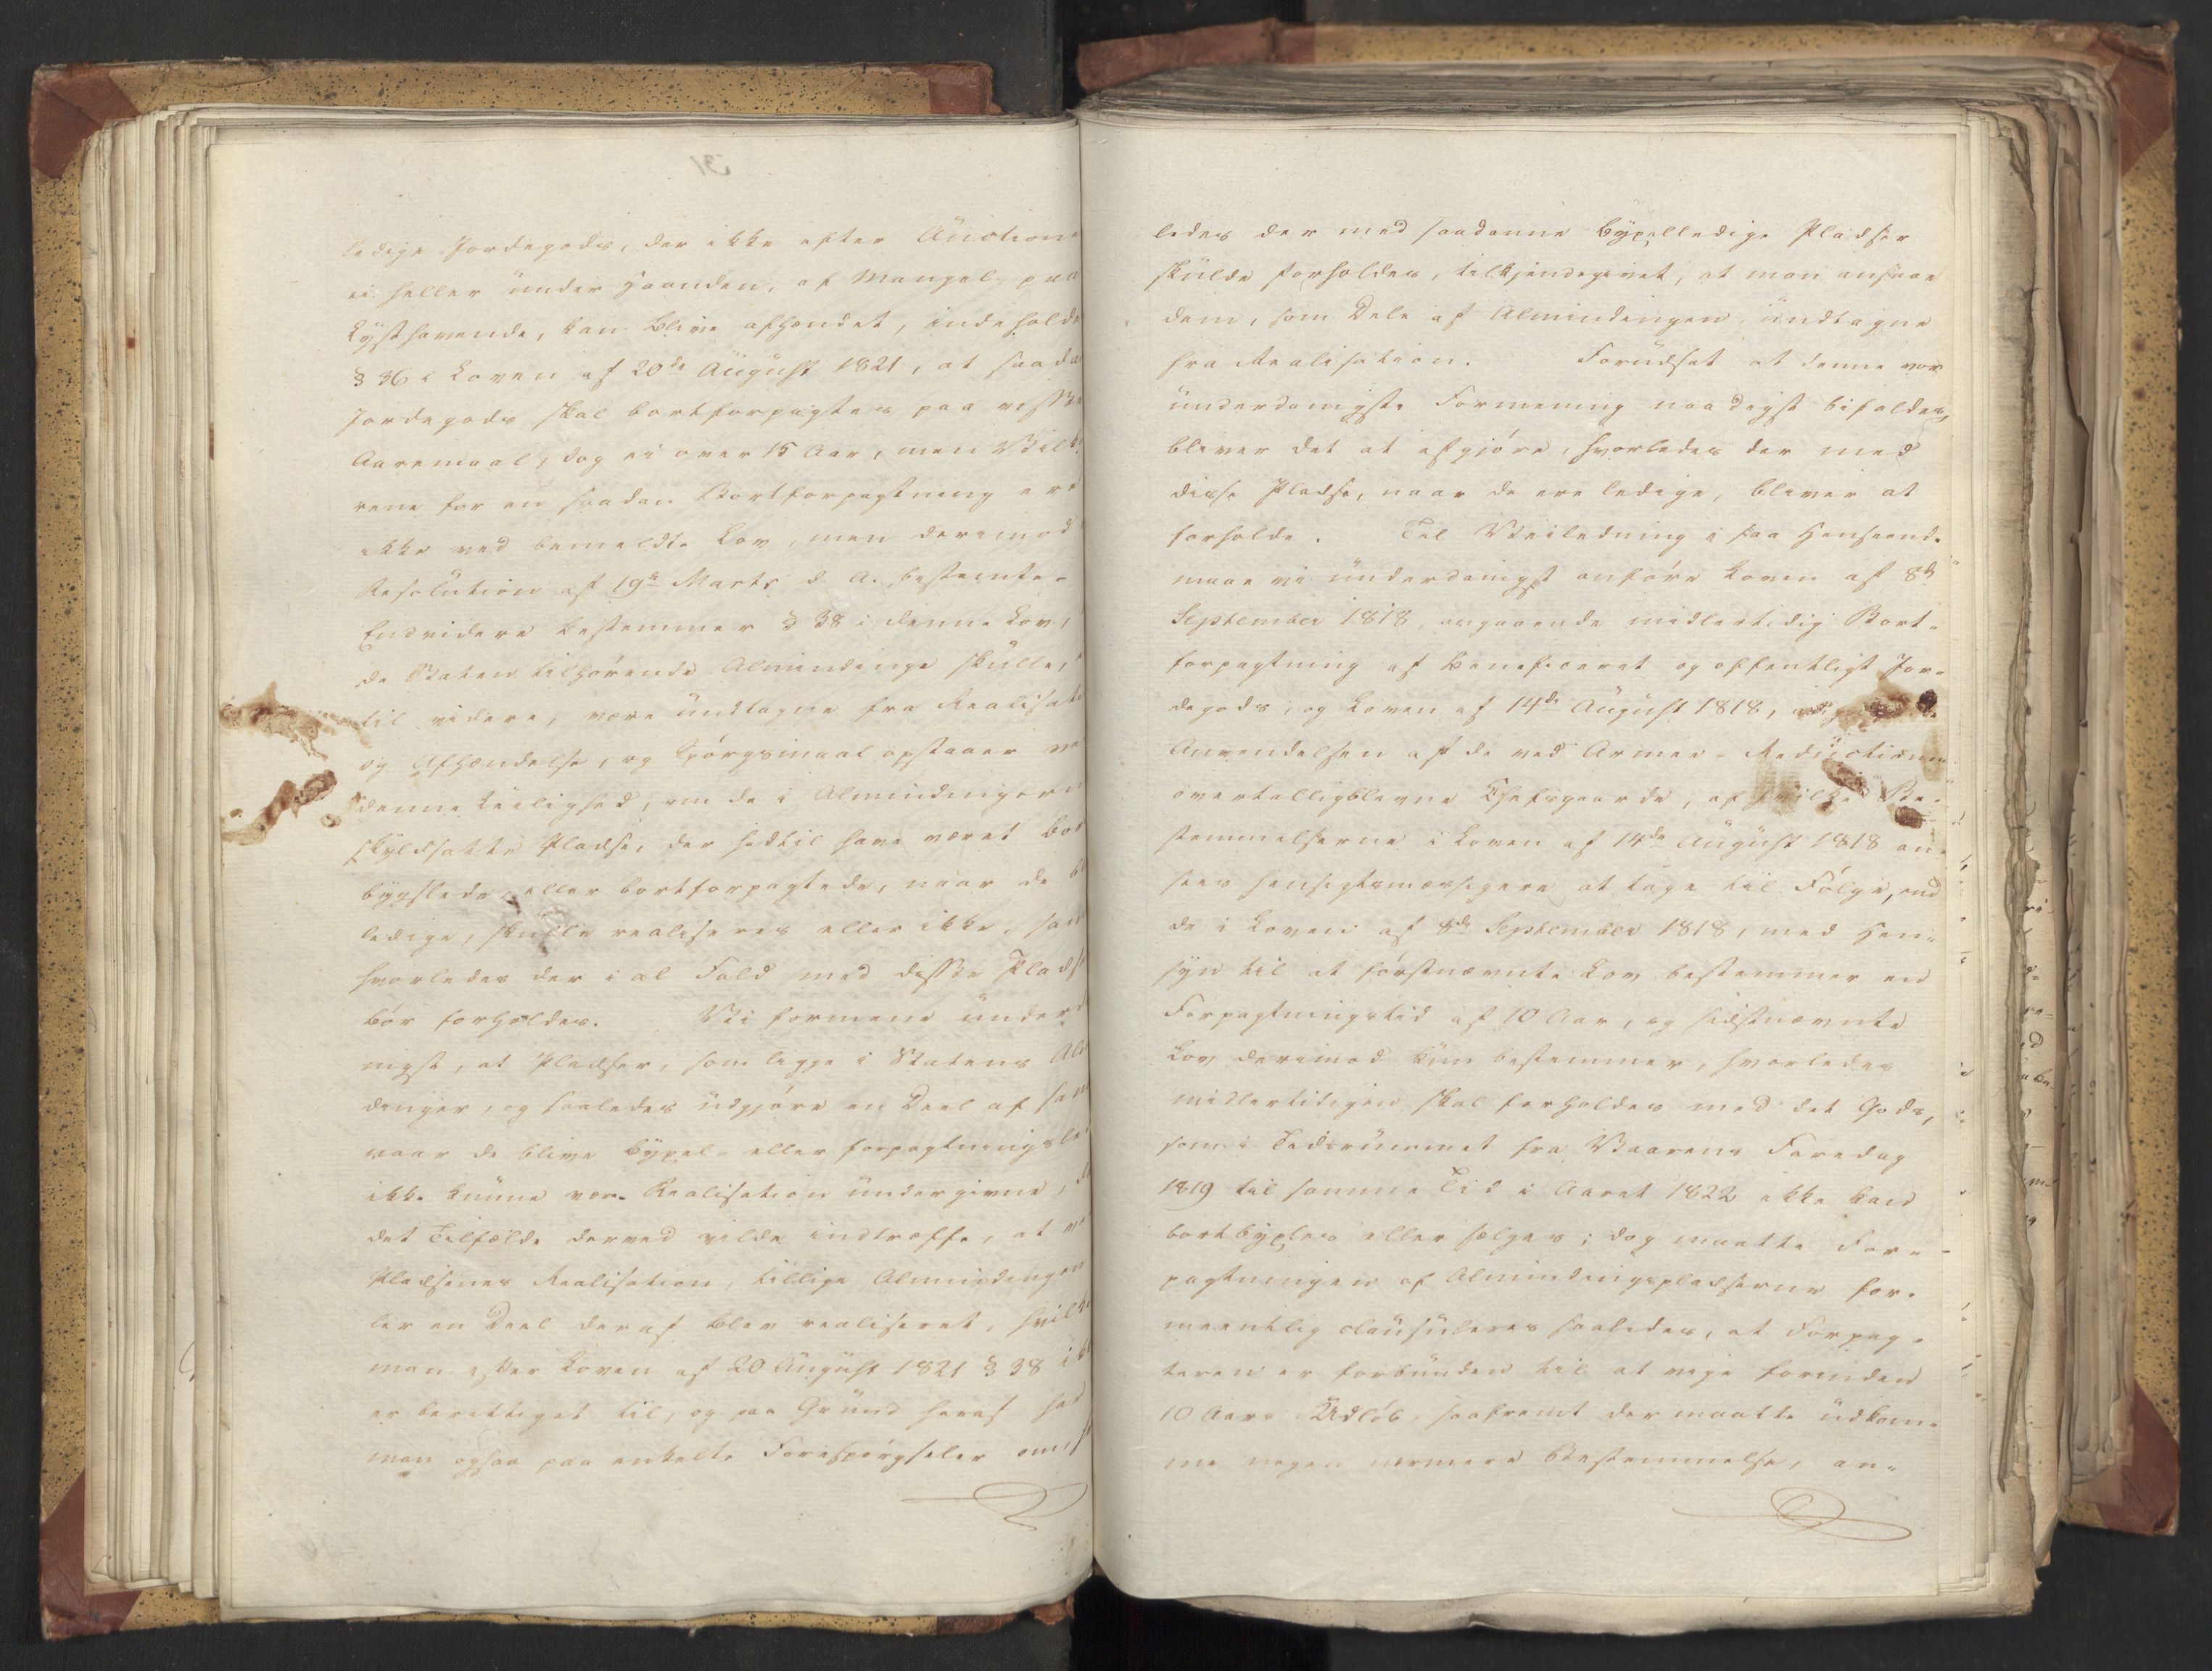 ledige Jordegods, der ikke efter Auction
ei heller under Haanden, af Mangel paa
Lysthavende, kan blive afhændet, indeholde
§ 36 i Loven af 20de August 1821, at saada
Jordegods skal bortforpagtes paa visse
Aaremaal, dog ei over 15 Aar, men Vilk
rene for en saadan Bortforpagtning ere
ikke ved bemeldte Lov, men derimod
Resolution af 19de Marts d. A. bestemte.
Endvidere bestemmer § 38 i denne Lov,
de Staten tilhørende Almindinge skulle,
til videre, være undtagne fra Realisati
og Afhændelse, og Spørgsmaal opstaaer ve
denne Leilighed, om de i Almindingern
skyldsatte Pladse, der hidtil have været bor
bygslede eller bortforpagtede, naar de b
ledige, skulle realiseres eller ikke, sam
hvorledes der i al Fald med disse Plads
bør forholdes. Vi formene under
nigst, at Pladser, som ligge i Statens Al
dinger, og saaledes udgjøre en Deel af sam
naar de blive bygsel- eller forpagtningsle
ikke kunne være Realisation undergivne, d
det Tilfælde derved vilde indtræffe, at ve
Pladsenes Realisation, tillige Almindingen
ler en Deel deraf blev realiseret, hvilke
man efter Loven af 20 August 1821 § 38 ik
er berettiget til, og paa Grund heraf har
man ogsaa paa enkelte Forespørgseler om,
ledes der med saadanne bygselledige Pladser
skulde forholdes, tilkjendegivet, at man ansaae
dem, som Dele af Almindingen, undtagne
fra Realisation. Forudsat at denne vor
underdanigste Formening naadigst bifaldes,
bliver det at afgjøre, hvorledes der med
disse Pladse, naar de ere ledige, bliver at
forholde. Til Veiledning i saa Henseende
maae vi underdanigst anføre Loven af 8de
September 1818, angaaende midlertidig Bort-
forpagtning af beneficeret og offentligt Jor-
degods, og Loven af 14de August 1818,
Anvendelsen af de ved Armee-Reductionen
overtalligblevne Chefsgaarde, af hvilke Be-
stemmelserne i Loven af 14de August 1818 an-
sees hensigtsmæssigere at tage til Følge, end
de i Loven af 8de September 1818, med Hen-
syn til at førstnævnte Lov bestemmer en
Forpagtningstid af 10 Aar, og sidstnævnte
Lov derimod kun bestemmer, hvorledes
midlertidigen skal forholdes med det Gods,
som i Tidsrummet fra Vaarens Faredag
1819 til samme Tid i Aaret 1822 ikke kan
bortbygsles eller sælges; dog maatte For-
pagtningen af Almindingspladserne for-
meentlig clausuleres saaledes, at Forpag-
teren er forbunden til at vige forinden
10 Aars Udløb, saafremt der maatte udkom-
me nogen nærmere Bestemmelse, an-